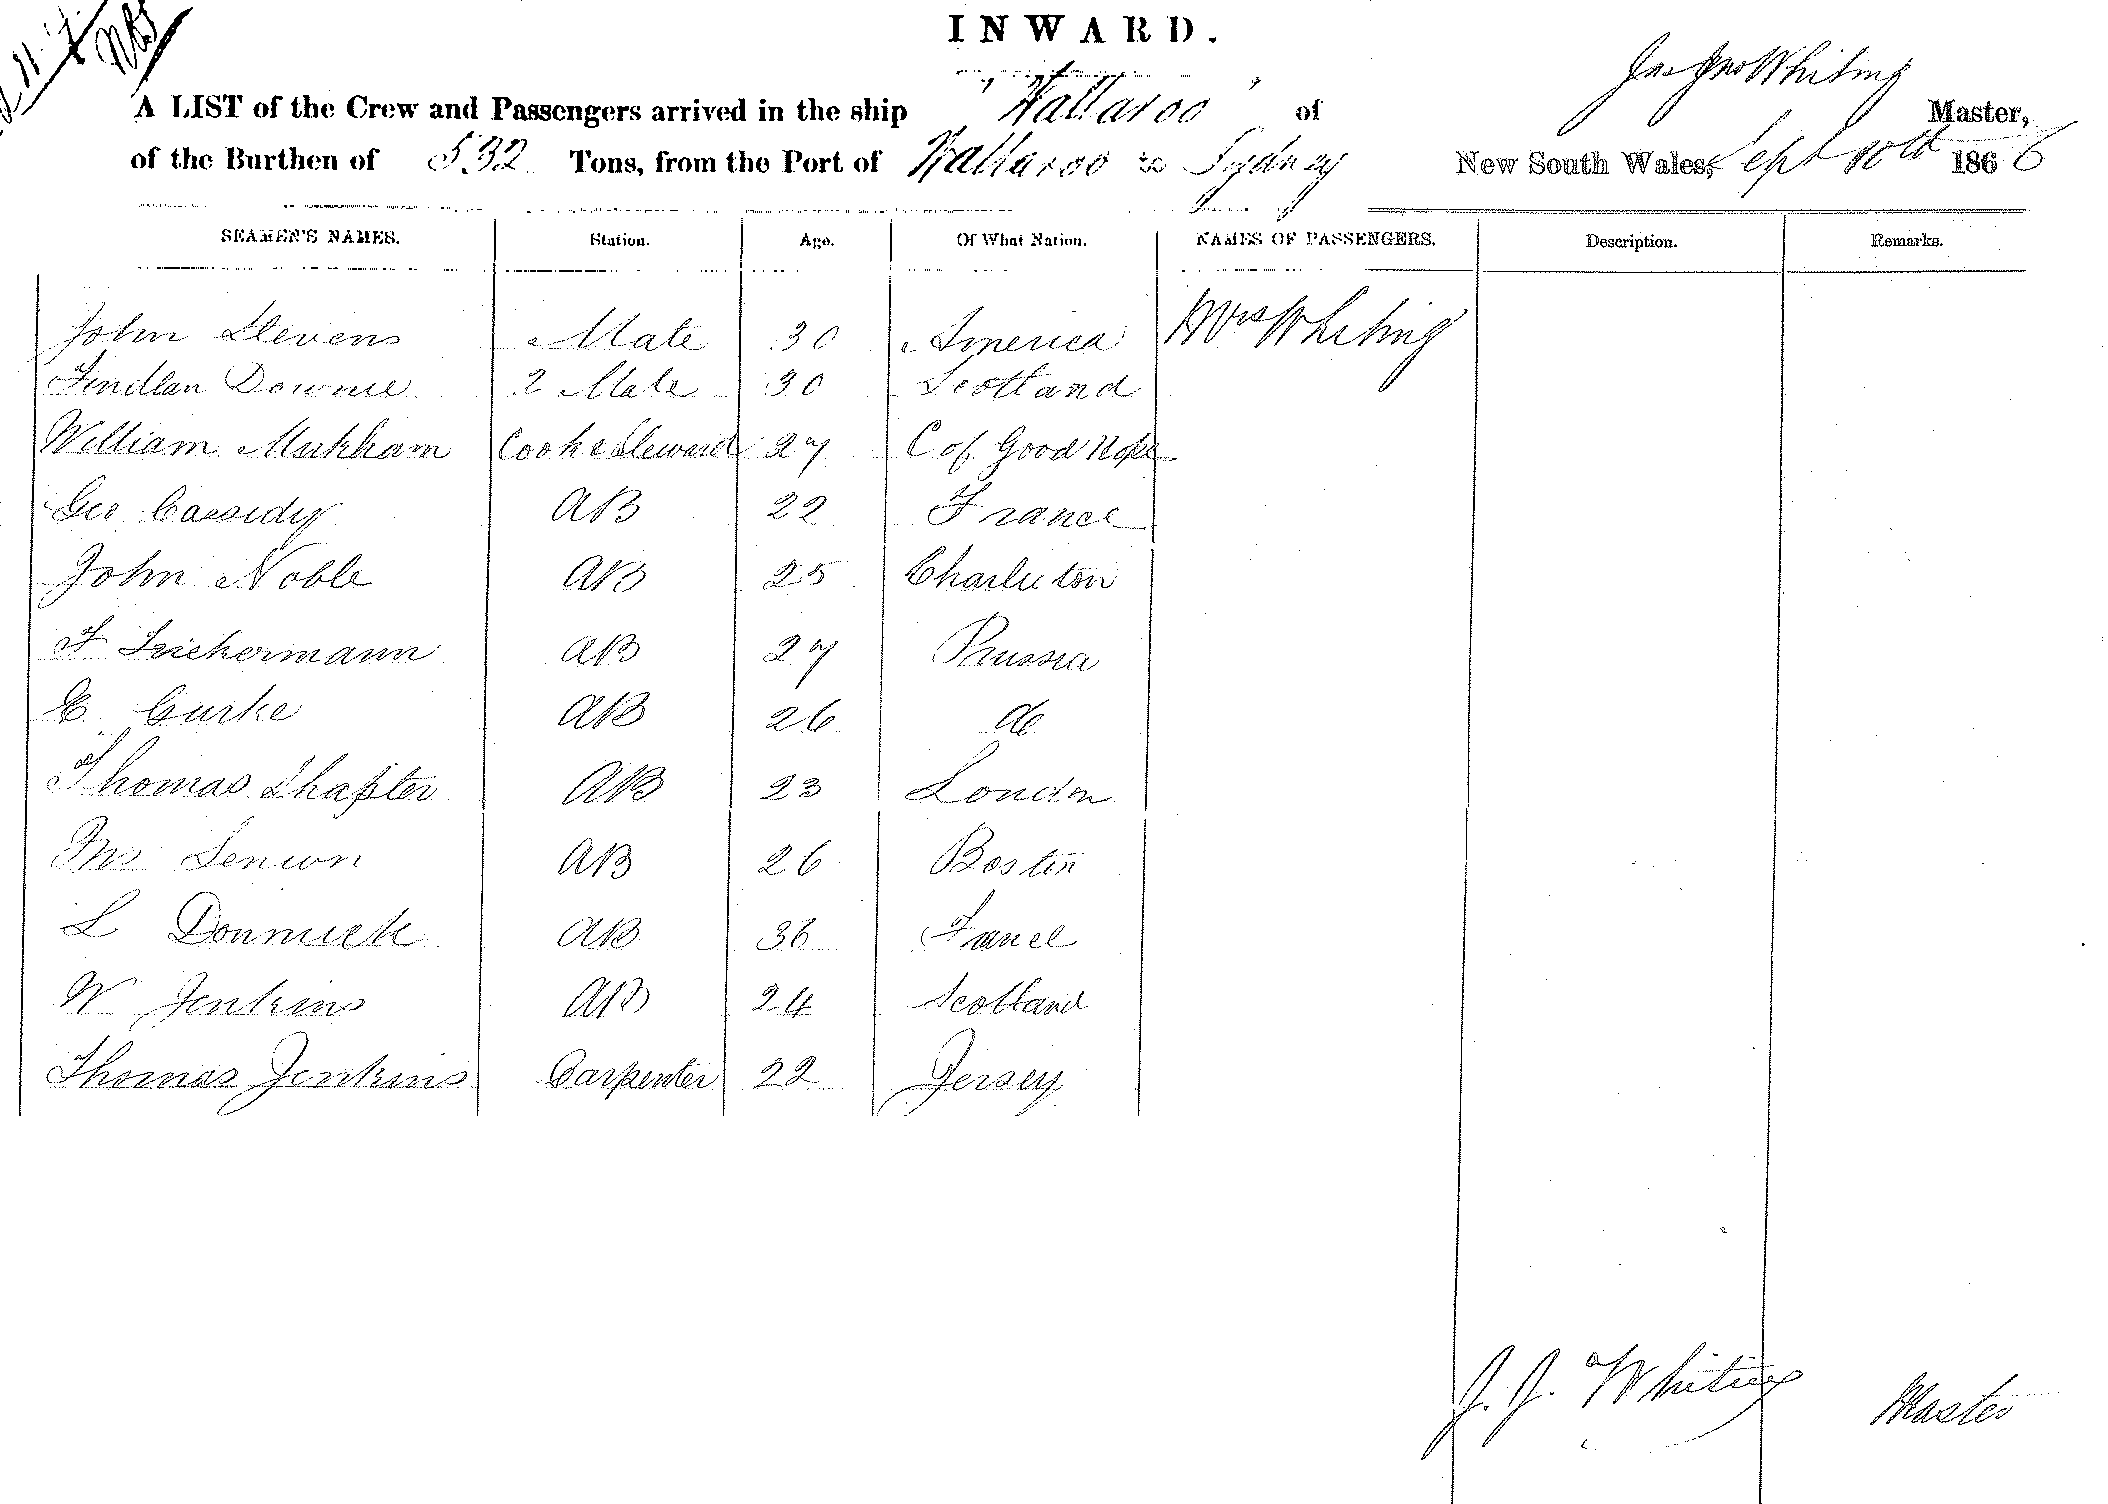 INWARD.
A LIST of the Crew and Passengers arrived in the ship "Wallaroo" of Jas Jno Whiting Master,
of the Burthen of 532 Tons, from the Port of Wallaroo to Sydney New South Wales, Sept 10th 1866
SEAMEN'S NAMES. Station. Age. Of What Nation. NAMES OF PASSENGERS. Description. Remarks.
John Stevens Mate 30 America Mrs Whiting
Findlan Downie 2 Mate 30 Scotland
William Mukham Cook & Steward 27 C of Good Hope
Geo Cassidy AB 22 France
John Noble AB 25 Charleston
F AB 27 Prussia
E. Curke AB 26 do
Thomas Shapter AB 23 London
AB 26 Boston
L Donmick AB 36 France
W Jenkins AB 24 Scotland
Thomas Jenkins Carpenter 22 Jersey
J. J. Whiting Master